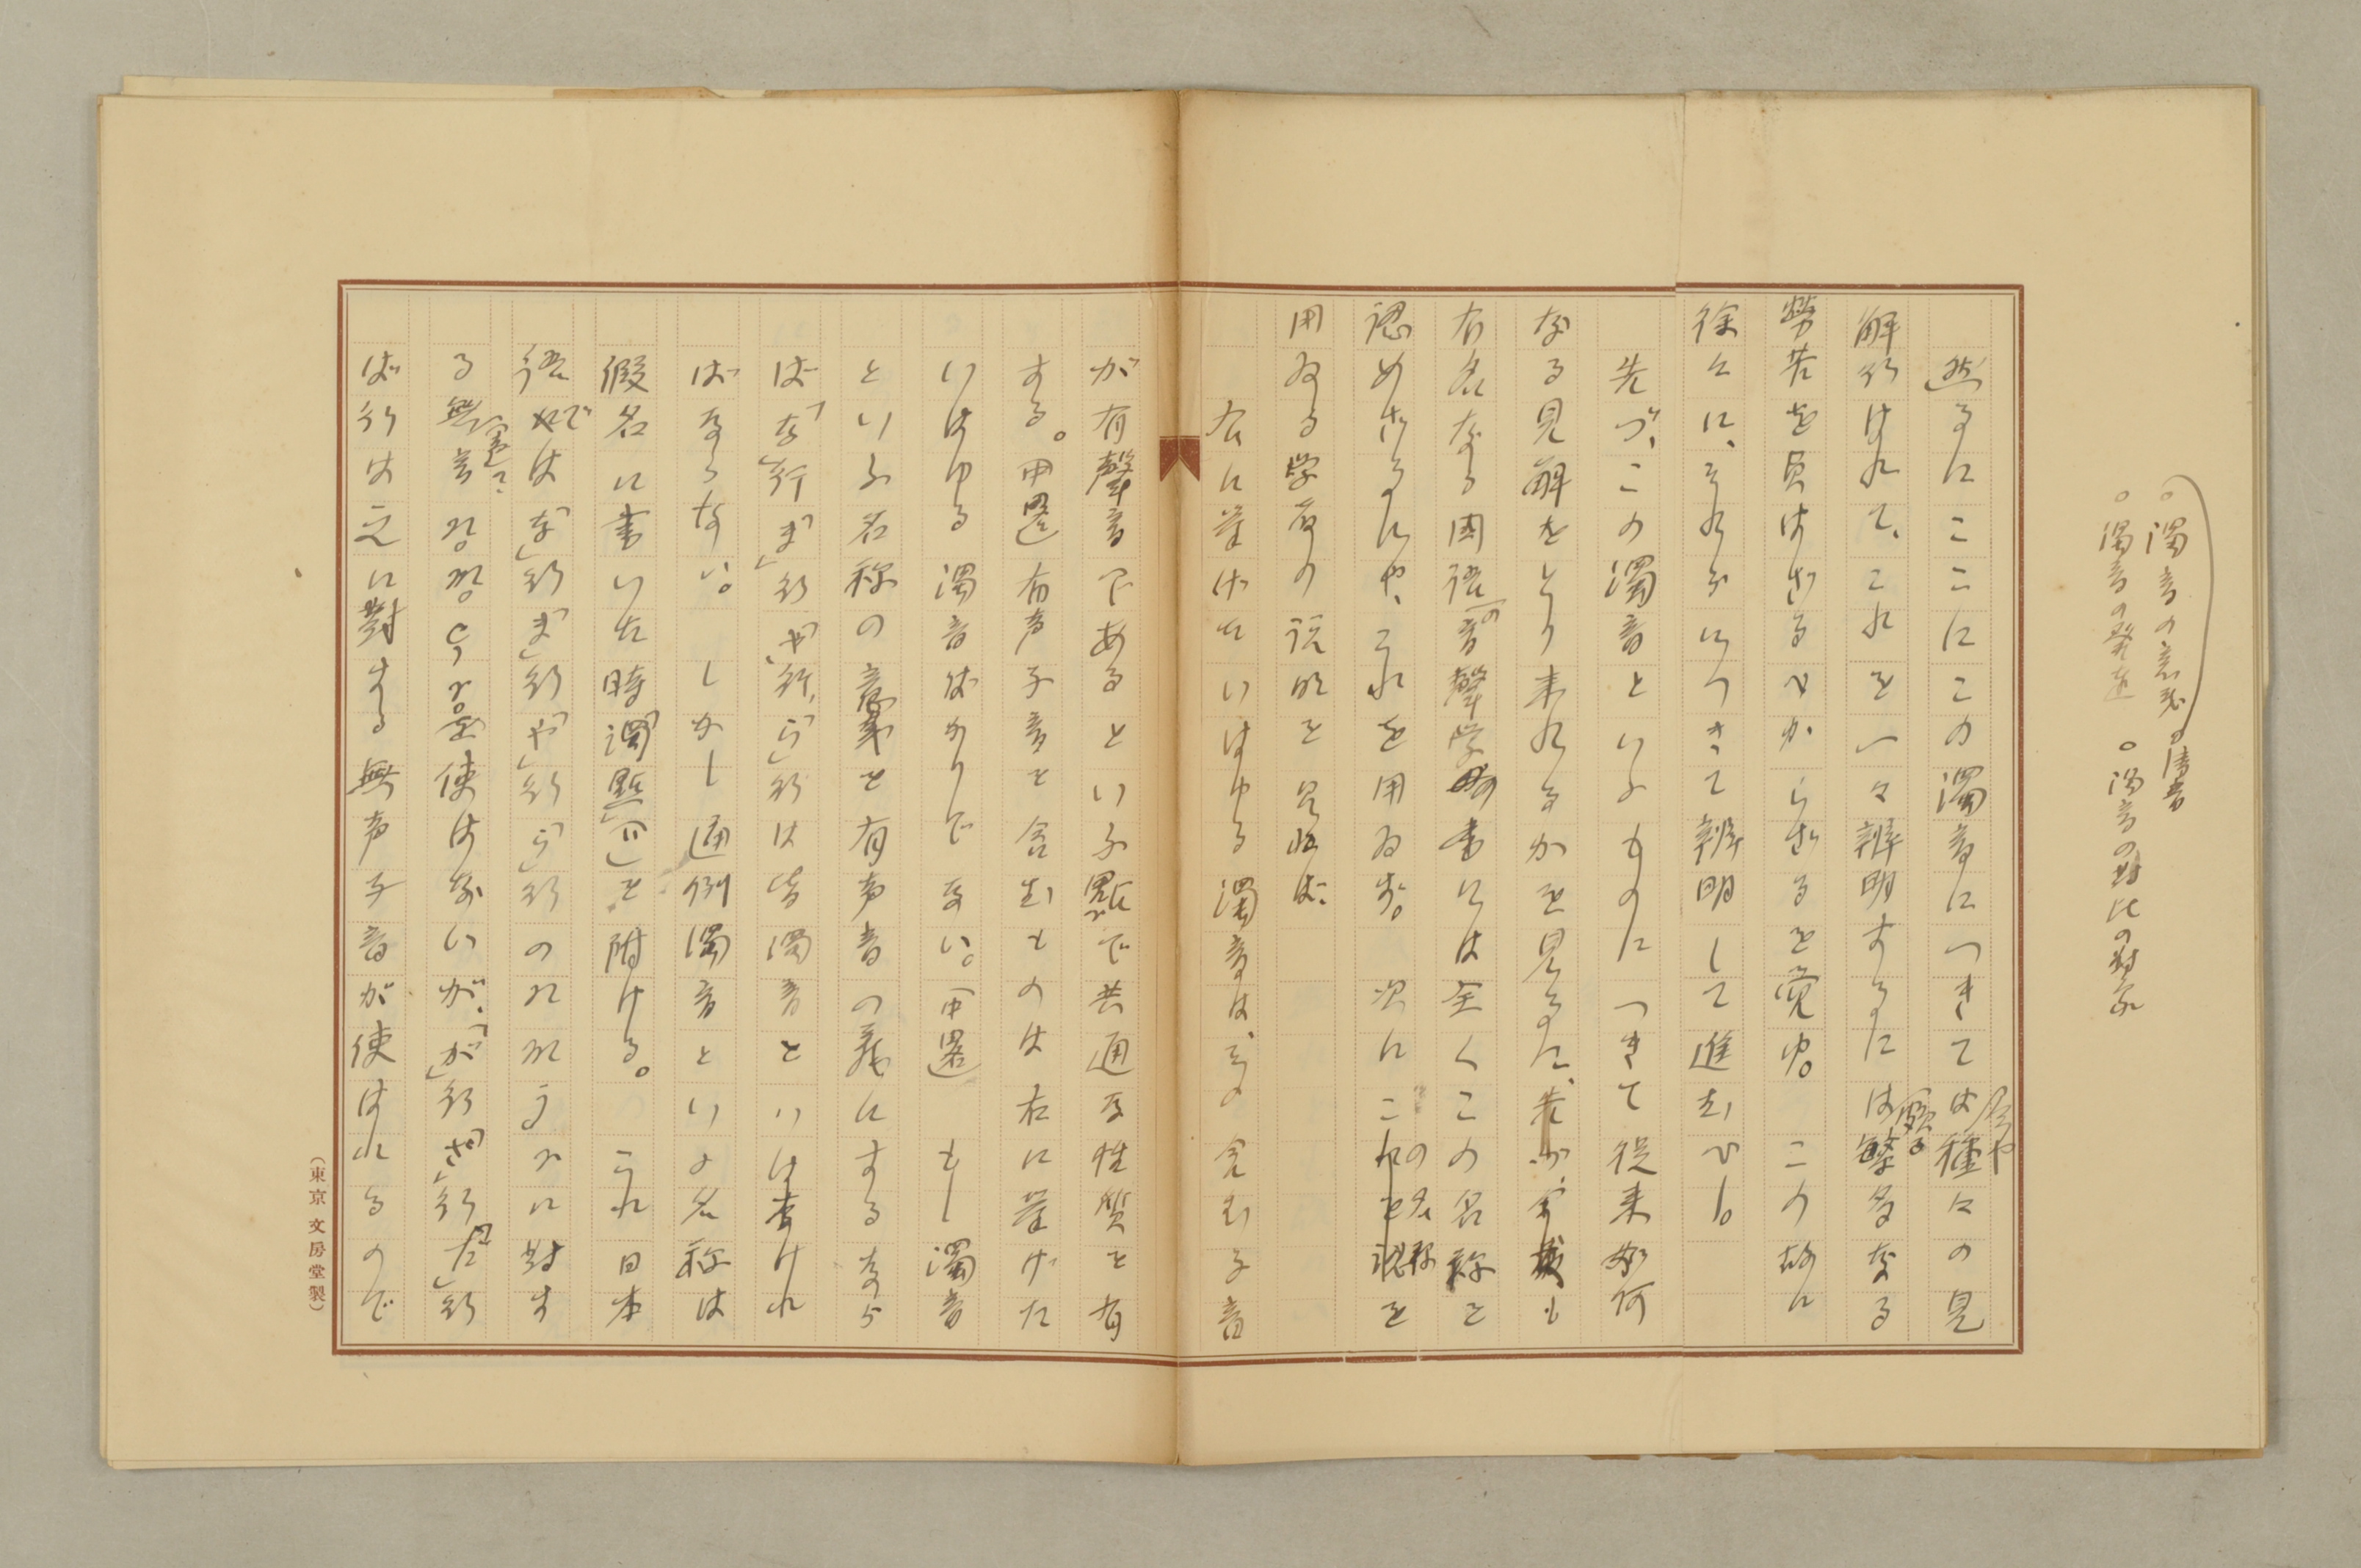 。濁音の意義 。清音
。濁音の発達 。濁音の対比の対象
然るにここにこの濁音につきては今や種々の見
解行はれて、これを一々辨明するには頗る繁多なる
勞苦を負はざるべからざるを覚ゆ。この故に
徐々に、それらにつきて辨明して進むべし。
先づ、この濁音といふものにつきて従来如何
なる見解をとり来れるかを見るに、先づ、
有名なる国語の音聲学の書には全くこの名称を
認めざるにや、これを用ゐず。次にこの名称を
用ゐる学者の説明を見れば、
右に挙げたいはゆる濁音は、その含む子音
が有聲音であるといふ點で共通な性質を有
する。中畧 有声子音を含むものは右に挙げた
いはゆる濁音ばかりでない。(中畧) もし濁音
といふ名称の意義を有声音の義にするなら
ば「な」行「ま」行「や」行「ら」行は皆濁音といは
なければならない。しかし通例濁音といふ名称は
假名に書いた時「濁點」(〃)を附ける。これ日本
語では「な」行「ま」行「や」行「ら」行のnmyrに対す
る無音 使はないが、「が」行「ざ」行「だ」行
ば行は之に對する無声子音が使はれるので
(東京 文房堂製)